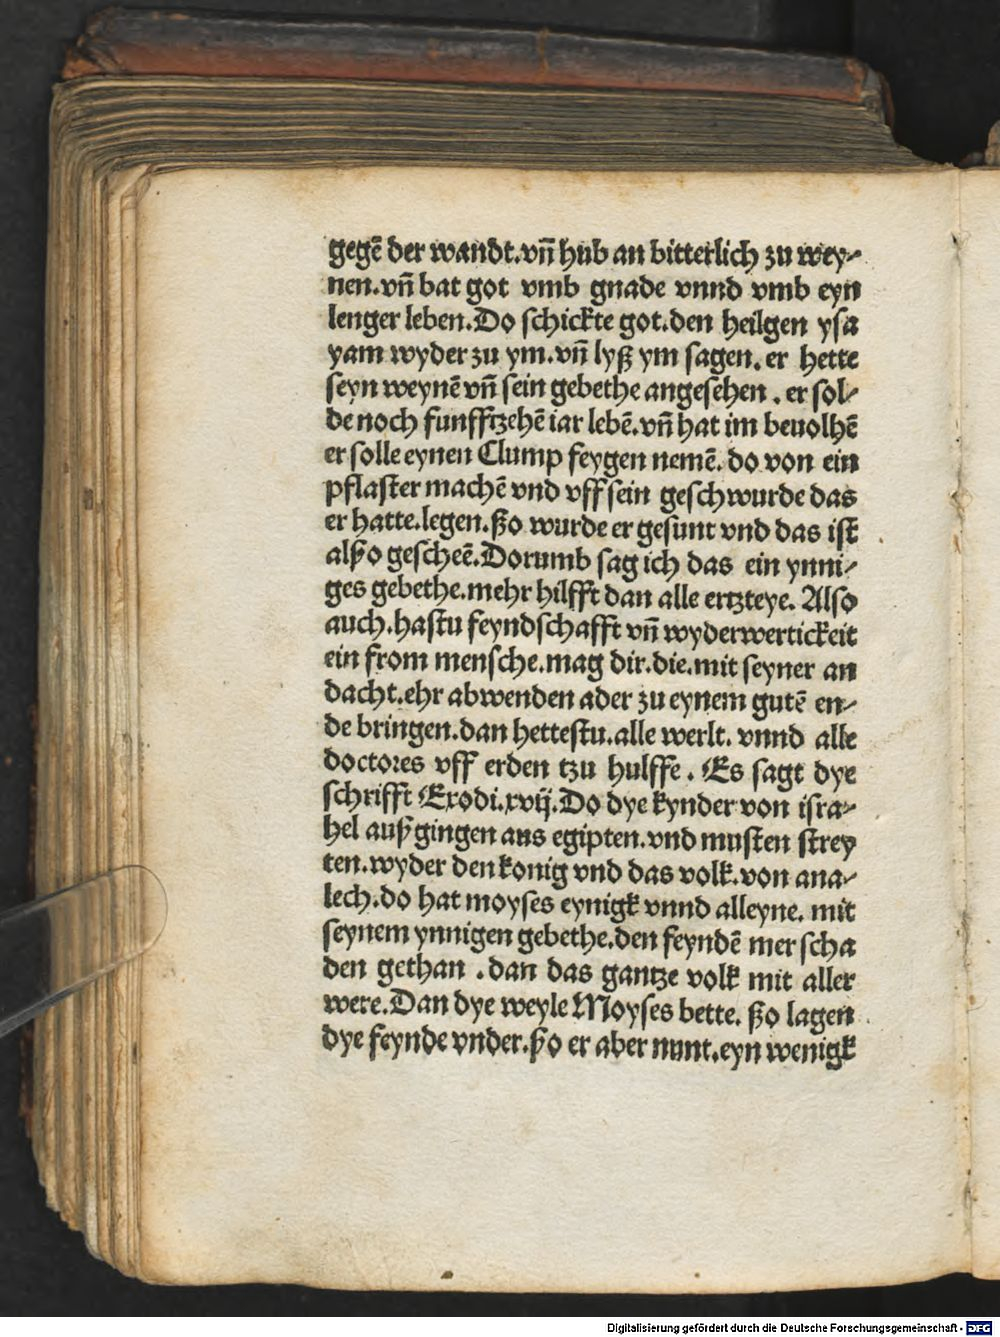 gegē der wandt.vn̄ hub an bitterlich zu wey-
nen.vn̄ bat got vmb gnade vnnd vmb eyn
lenger leben.Do schickte got.den heilgen ysa
yam wyder zu ym.vn̄ lyß ym sagen.er hette
seyn weynē vn̄ sein gebethe angesehen.er sol-
de noch funfftzehē iar lebē.vn̄ hat im beuolhē
er solle eynen Clump feygen nemē.do von ein
pflaster machē vnd vff sein geschwurde das
er hatte.legen.ßo wurde er gesunt vnd das ist
alßo gescheē.Dorumb sag ich das ein ynni-
ges gebethe.mehr hilfft dan alle ertzteye. Also
auch.hastu feyndschafft vn̄ wyderwertickeit
ein from mensche.mag dir.die.mit seyner an
dacht.ehr abwenden ader zu eynem gutē en-
de bringen.dan hettestu.alle werlt. vnnd alle
doctores vff erden tzu hulffe. Es sagt dye
schrifft Exodi.xvij.Do dye kynder von isra-
hel außgingen aus egipten.vnd musten strey
ten.wyder den konig vnd das volk.von ana-
lech.do hat moyses eynigk vnnd alleyne. mit
seynem ynnigen gebethe.den feyndē mer scha
den gethan .dan das gantze volk mit aller
were.Dan dye weyle Moyses bette. ßo lagen
dye feynde vnder.ßo er aber nunt.eyn wenigk
Digitalisierung gefördert durch die Deutsche Forschungsgemeinschaft - DFG